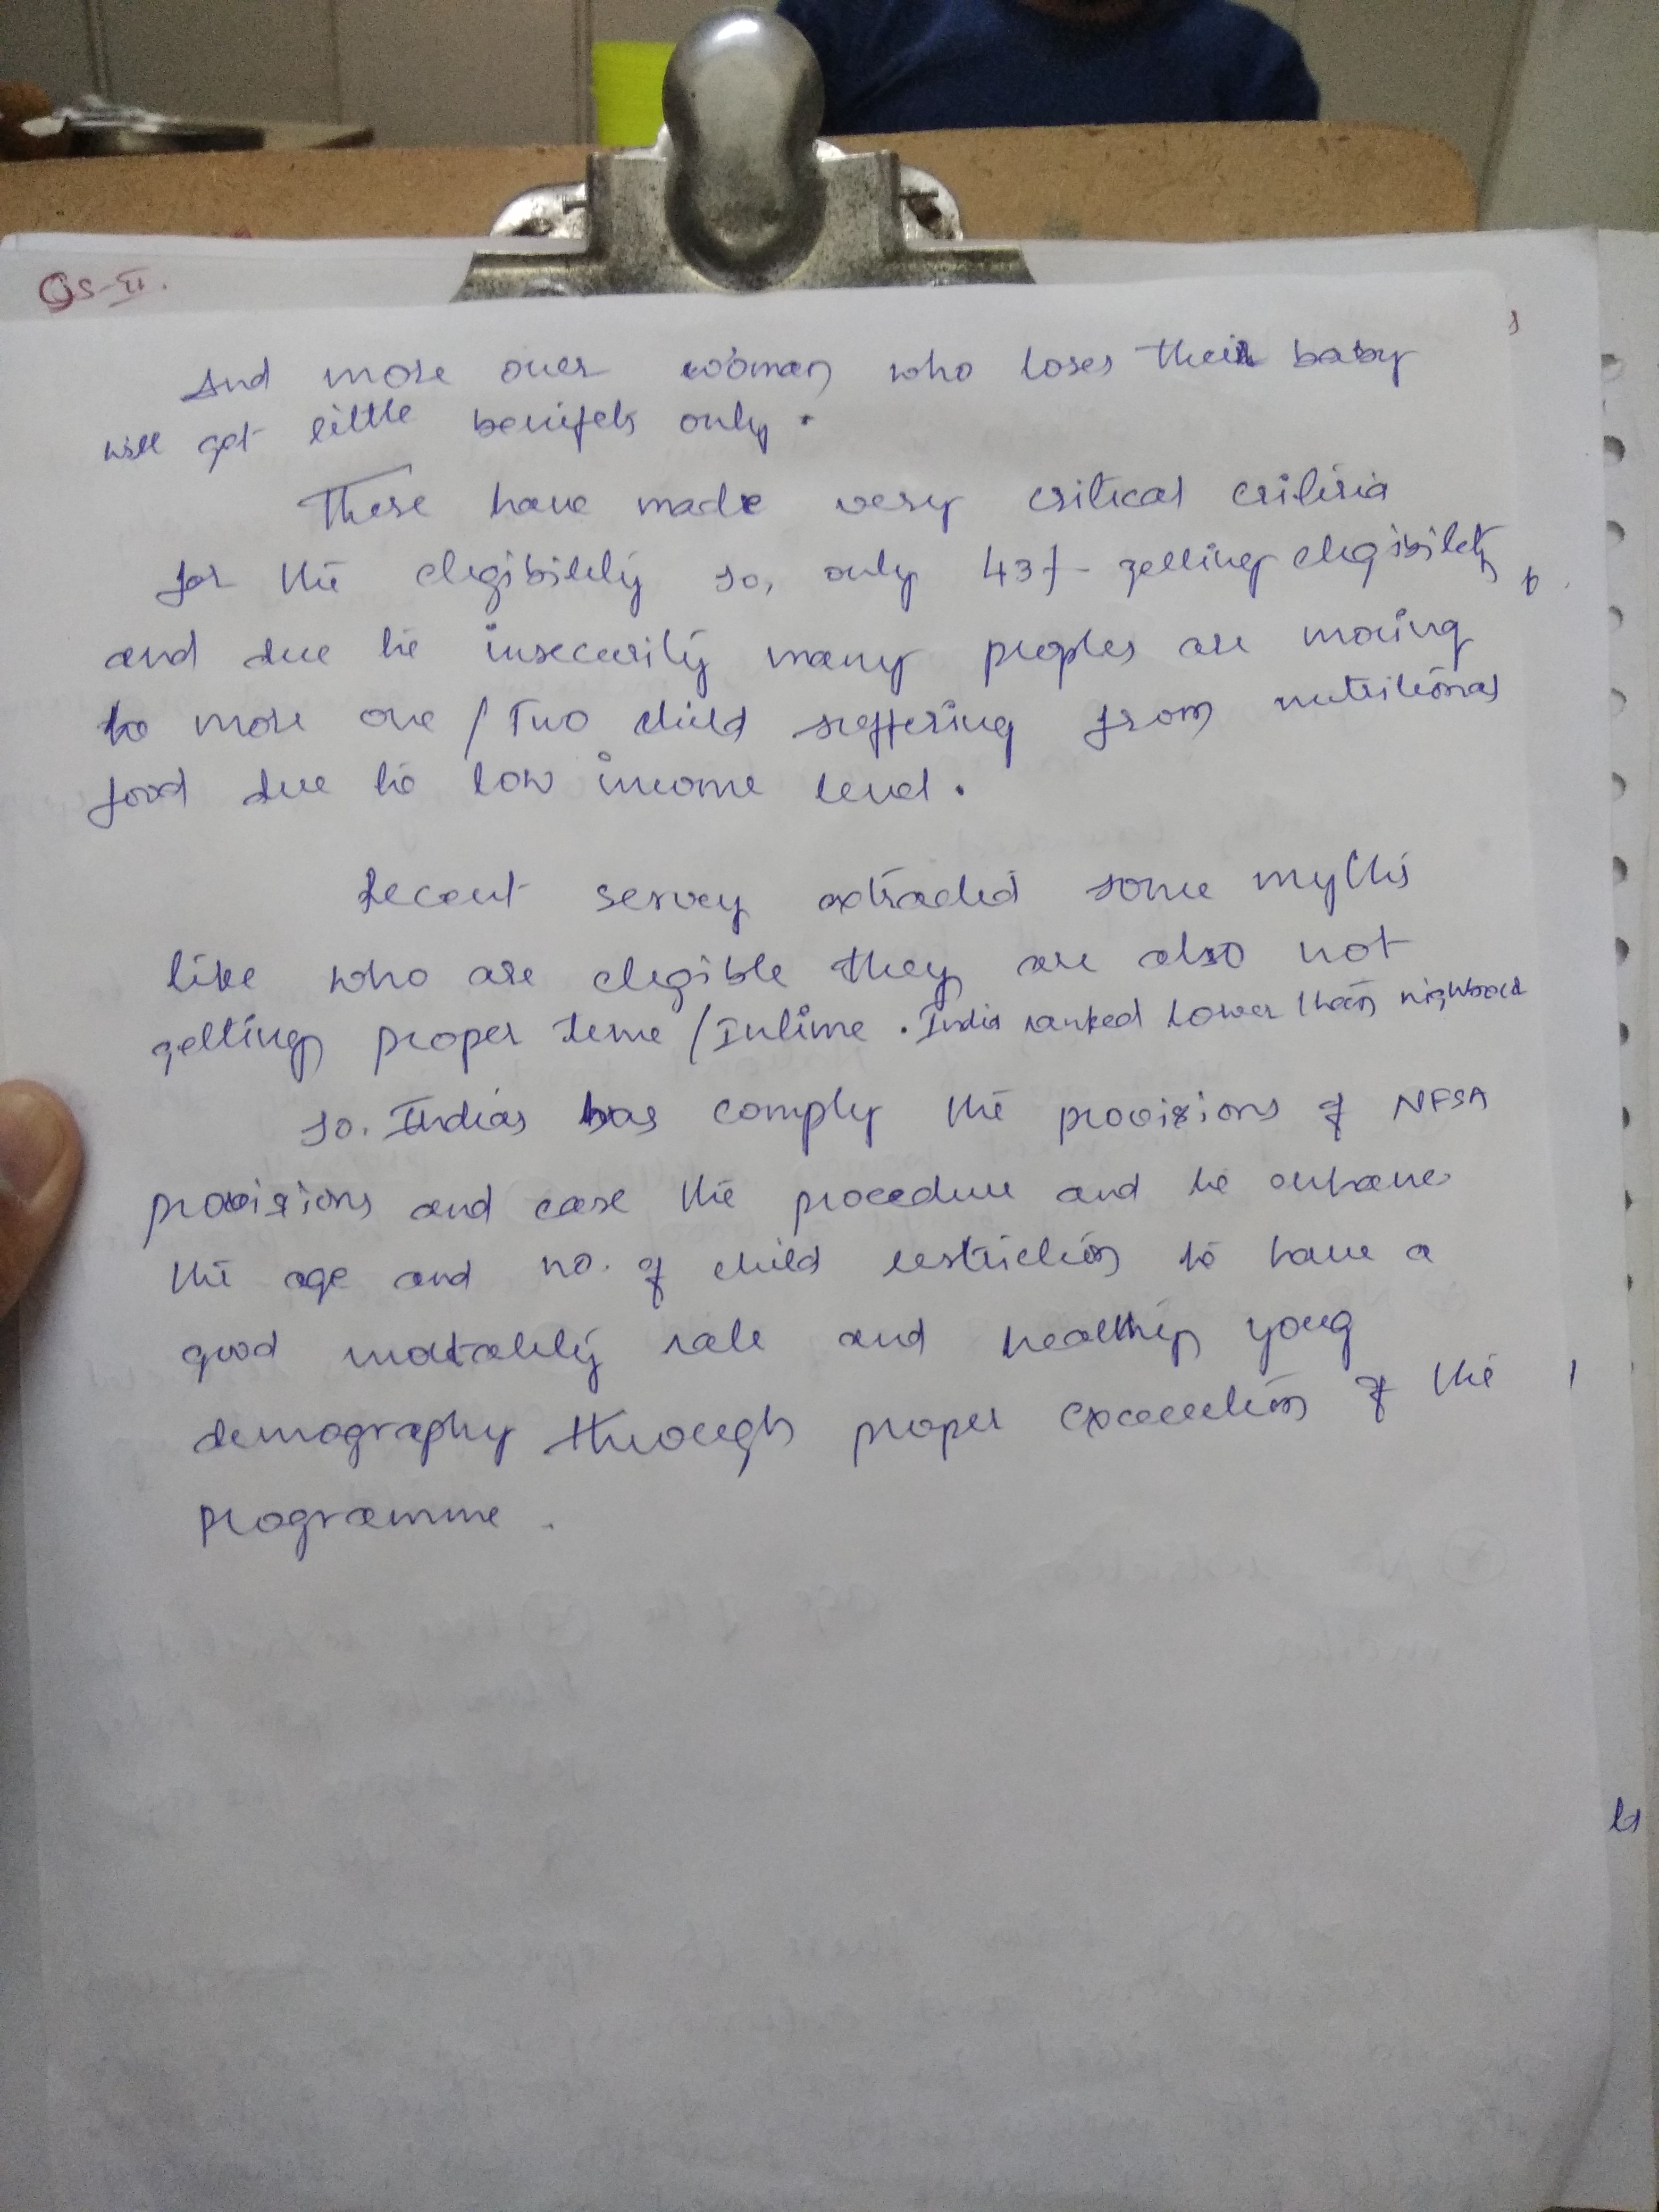 GS-II.
And more over woman who loses their baby
will get little benifets only.
These have made very critical criteria
for the elegibility so, only 43% getting elegibility
and due to insecurity many peoples are moving
to more one / Two child suffering from nutritional
food due to low income level.
Recent servey extracted some myths
like who are elegible they are also not
getting proper time / Intime. India ranked lower than
so. Indias has comply the provisions of NFSA
provisions and ease the procedure and to enhance
the age and no. of child restriction to have a
good mortality rate and healthy youg
demography through proper of the
programme.